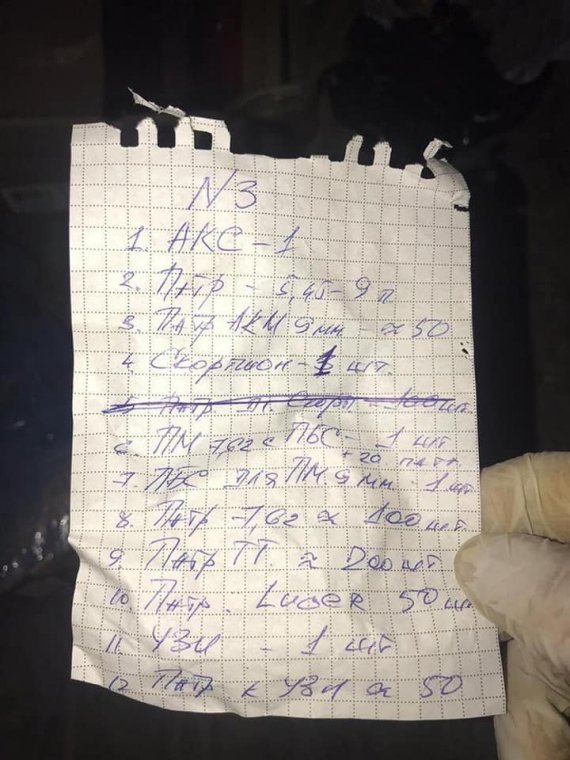 N3
1. АКС - 1
2. Пнтр - 5,45 - 9 п
3. Пнтр АКМ 9 мм - ≈ 50
4. Скорпион - 1 шт.
5 Пнтр - 100 шт.
6 ПМ 7,62 с ПБС - 1 шт
+ 20 патр.
7. ПБС для ПМ 9 мм - 1 шт
8. Пнтр 7,62 ≈ 100 шт
9. Пнтр ТТ. ≈ шт
10. Пнтр. Luger 50 шт
11. УЗИ - 1 шт
12. Пнтр к УЗИ ≈ 50